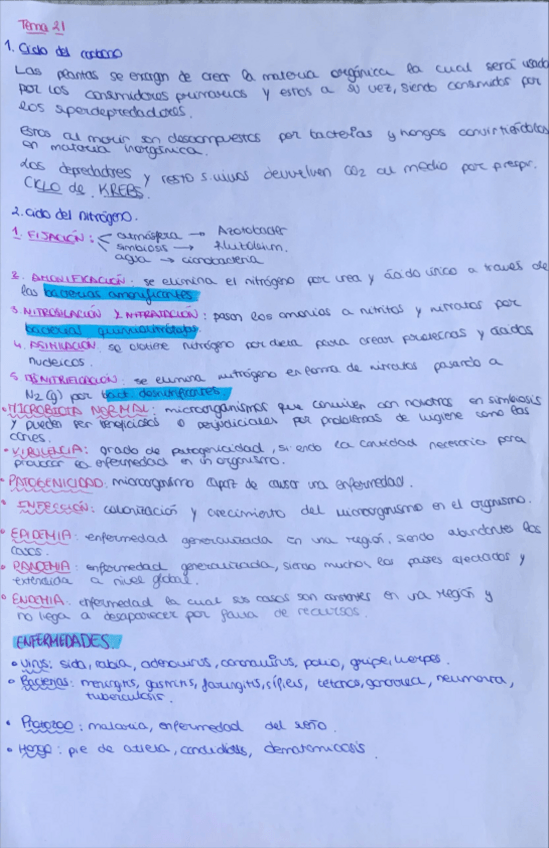 Tema 21
1. Ciclo del carbono
Las plantas se encargn de crear la materia orgánica la cual será usada
por los consumidores primarios y estos a su vez, siendo consumidos por
los superdepredadores.
Estos al morir son descompuestos por bacterias y hongos convirtiéndolos
en materia inorgánica.
Los depredadores y resto s.vivos devuelven CO2 al medio por respir.
CICLO de KREBS.
2. Ciclo del nitrógeno.
1. FIJACIÓN: atmósfera → Azotobacter
simbiosis → Rhizobium.
agua → cianobacteria
2. AMONIFICACIÓN: se elimina el nitrógeno por urea y ácido úrico a través de
las bacterias amonificantes.
3. NITROSILACIÓN Y NITRATACIÓN: pasan los amonios a nitritos y nitratos por
bacterias quimiosintéticas.
4. ASIMILACIÓN: se obtiene nitrógeno por dieta para crear proteínas y ácidos
nucleicos.
5. DESNITRIFICACIÓN: se elimina nitrógeno en forma de nitratos pasando a
N2 (g) por bact. desnitrificantes.
• MICROBIOTA NORMAL: microorganismos que conviven con nosotros en simbiosis
y pueden ser beneficiosos o perjudiciales por problemas de higiene como las
caries.
• VIRULENCIA: grado de patogenicidad, siendo la cantidad necesaria para
provocar la enfermedad en un organismo.
• PATOGENICIDAD: microorganismo capaz de causar una enfermedad.
• INFECCIÓN: colonización y crecimiento del microorganismo en el organismo.
• EPIDEMIA: enfermedad generalizada en una región, siendo abundantes los
casos.
• PANDEMIA: enfermedad generalizada, siendo muchos los países afectados y
extendida a nivel global.
• ENDEMIA: enfermedad la cual sus casos son constantes en una región y
no llega a desaparecer por falta de recursos.
ENFERMEDADES.
• Virus: sida, rabia, adenovirus, coronavirus, polio, gripe, herpes.
• Bacterias: meningitis, gastritis, faringitis, sífilis, tétanos, gonorrea, neumonía,
tuberculosis.
• Protozoo: malaria, enfermedad del sueño.
• Hongo: pie de atleta, candidiasis, dermatomicosis.